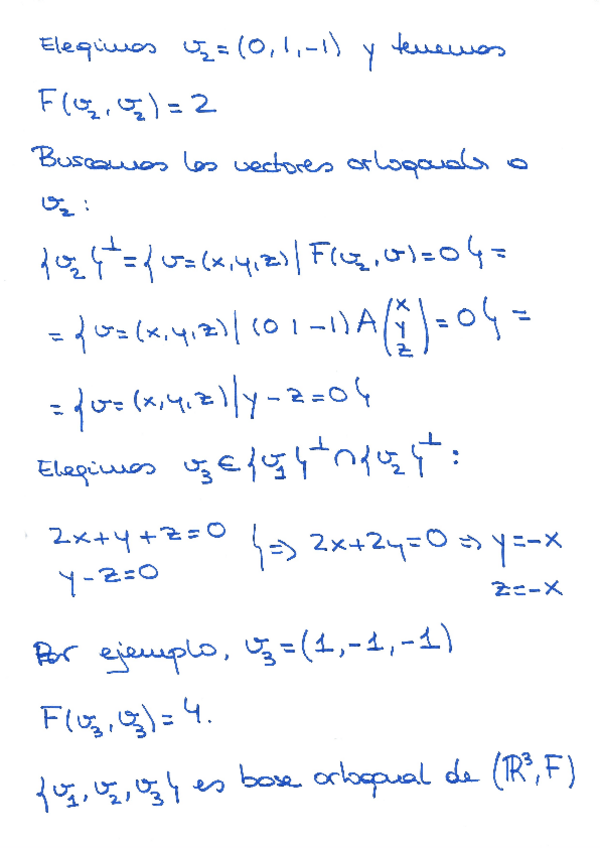 Elegimos v₂=(0,1,-1) y tenemos
F(v₂,v₂)=2
Buscamos los vectores ortogonales a
v₂:
{v₂}^⊥={v=(x,y,z)| F(v₂,v)=0}=
={v=(x,y,z)| (0 1 -1)A(x y z)=0}=
={v=(x,y,z)|y-z=0}
Elegimos v₃∈{v₁}^⊥∩{v₂}^⊥:
2x+y+z=0 } ⇒ 2x+2y=0 ⇒ y=-x
y-z=0 z=-x
Por ejemplo, v₃=(1,-1,-1)
F(v₃,v₃)=4.
{v₁,v₂,v₃} es base ortogonal de (ℝ³,F)